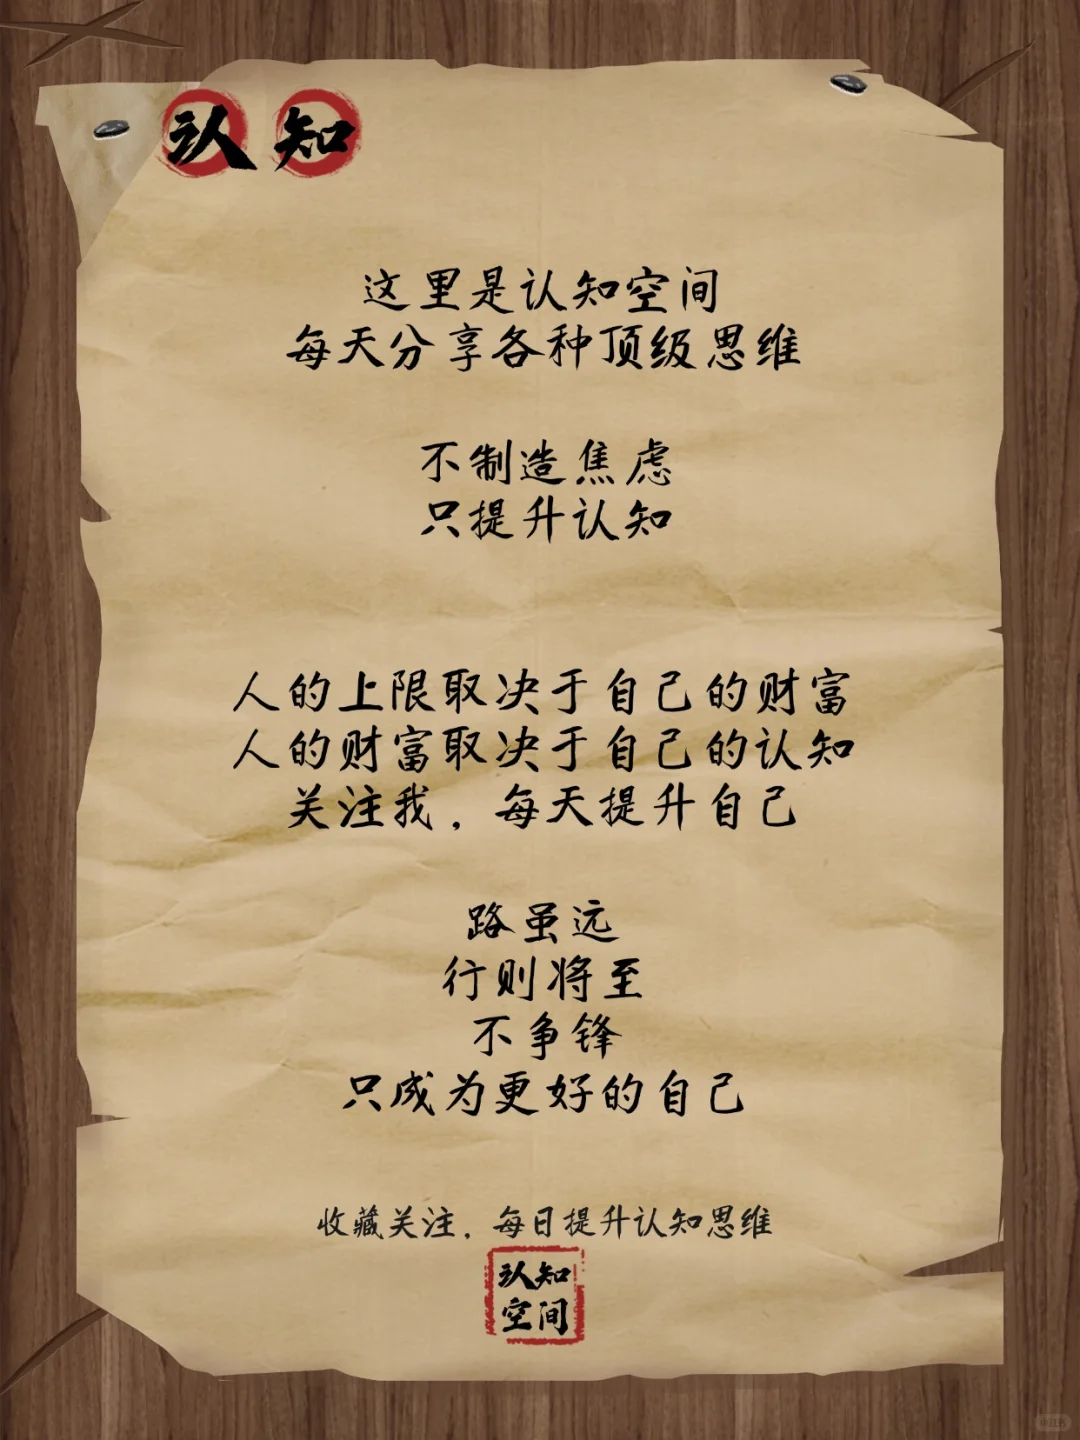 认知
这里是认知空间
每天分享各种顶级思维
不制造焦虑
只提升认知
人的上限取决于自己的财富
人的财富取决于自己的认知
关注我，每天提升自己
路虽远
行则将至
不争锋
只成为更好的自己
收藏关注，每日提升认知思维
认知
空间
小红书